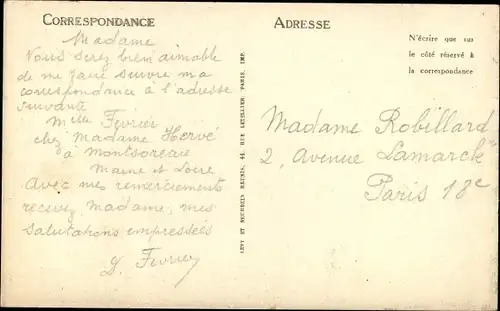 CORRESPONDANCE
Madame
Vous serez bien aimable
de me faire suivre ma
correspondance à l'adresse
suivante
Mlle Février
chez Madame Hervé
à Montsoreau
Maine et Loire
Avec mes remerciements
recevez, Madame, mes
salutations empressées
G. Février
LEVY ET NEURDEIN REUNIS, 44, RUE LETELLIER, PARIS, IMP.
ADRESSE
N'écrire que sur
le côté réservé à
la correspondance
Madame Robillard
2, Avenue Lamarck
Paris 18e